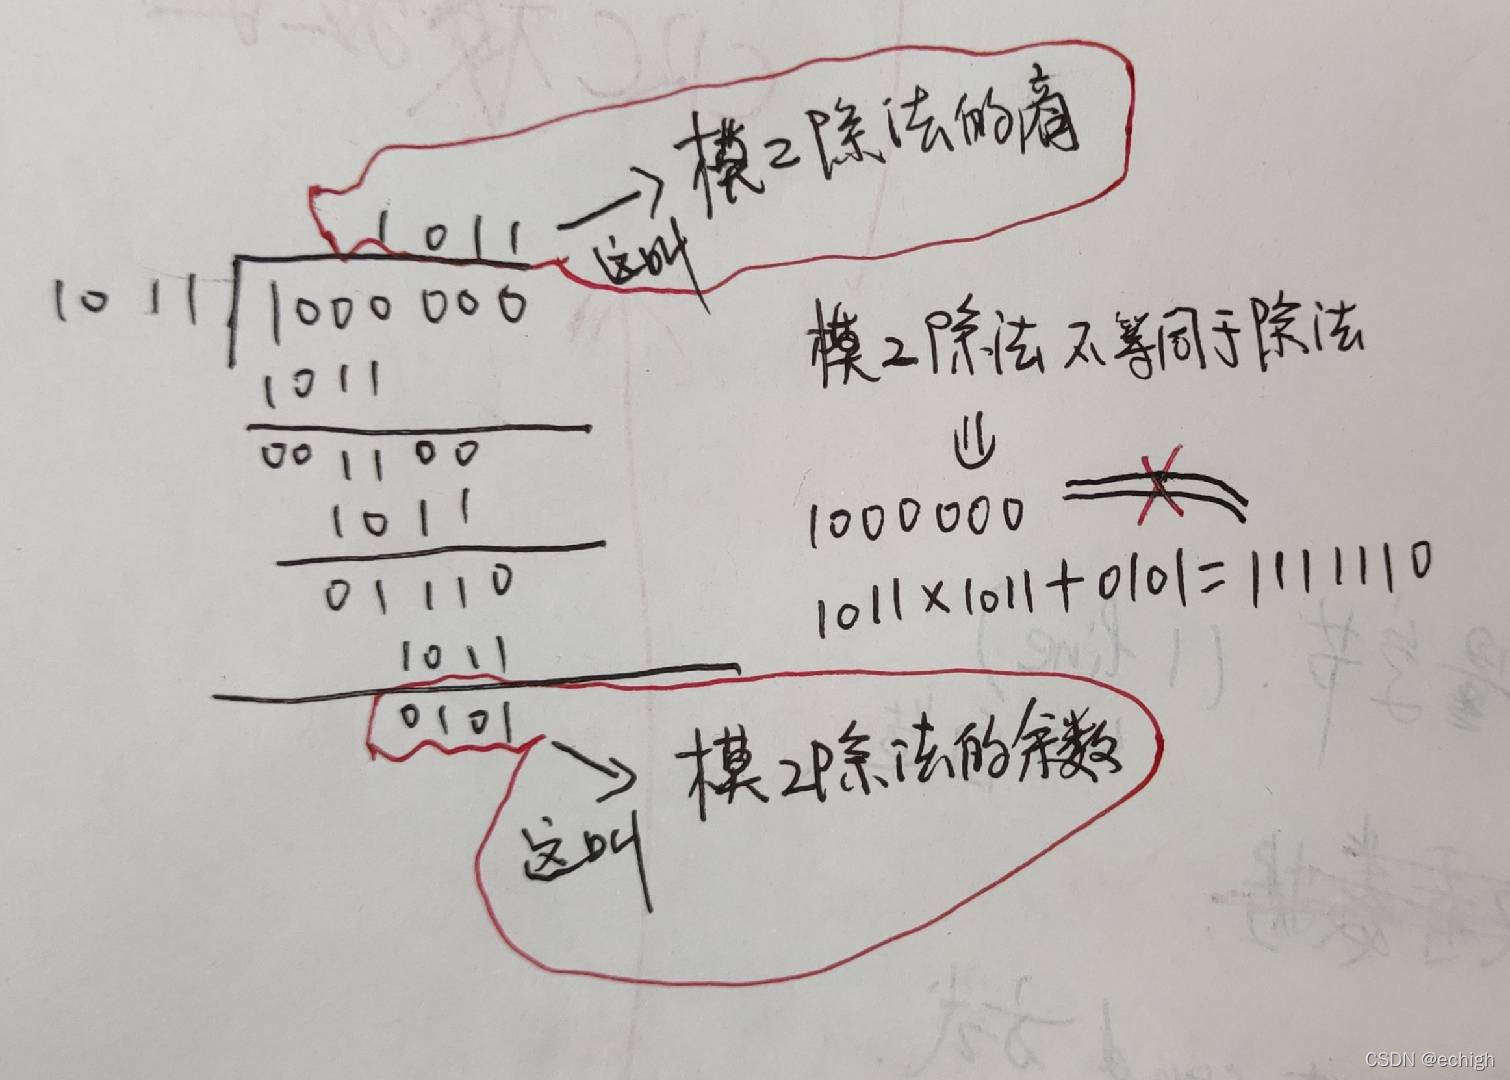 1011 → 模2除法的商
这叫
1011 1000000
1011
001100
1011
01110
1011
0101
这叫 模2除法的余数
模2除法不等同于除法
⇓
1000000 =
1011×1011+0101=1111110
CSDN @echigh